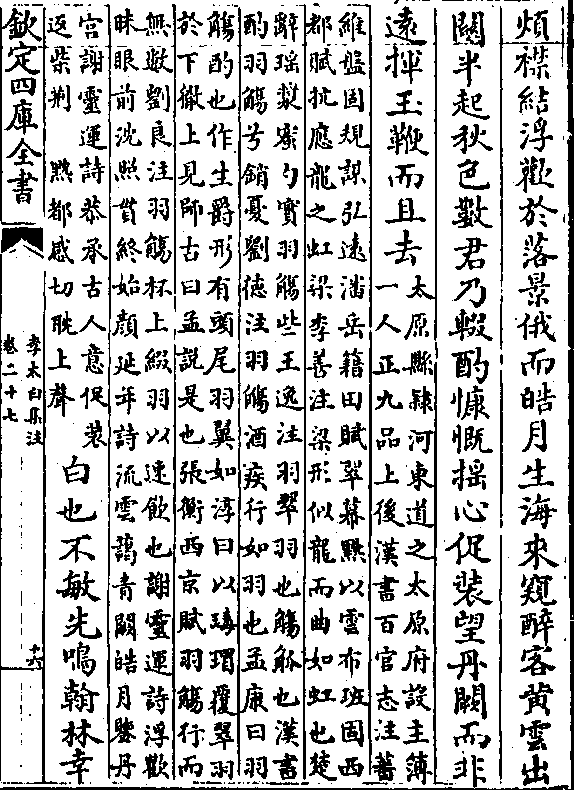 煩襟結浮歡於落景俄而皓月生海來窺醉客黄雲出
闗半起秋色數君乃輟酌慷慨揺心促装望丹闕而非
逺揮玉鞭而且去
太原縣隸河東道之太原府設主簿
一人正九品上後漢書百官志注蕃
維盤固規謀弘逺潘岳籍田賦翠幕黕以雲布班固西
都賦抗應龍之虹梁李善注梁形似龍而曲如虹也楚
辭瑶漿蜜勺實羽觴些王逸注羽翠羽也觴觚也漢書
酌羽觴兮銷憂劉徳注羽觴酒疾行如羽也孟康曰羽
觴爵也作生爵形有頭尾羽翼如淳曰以瑇瑁覆翠羽
於下徹上見師古曰孟説是也張衡西京賦羽觴行而
無數劉良注羽觴杯上綴羽以速飲也謝靈運詩浮歡
昧眼前沈照貫終始顔延年詩流雲藹青闕皓月鑒丹
宫謝靈運詩恭承古人意促装
返柴荆　黕都感切耽上聲
白也不敏先鳴翰林幸
欽定四庫全書
李太白集注
卷二十七
十六